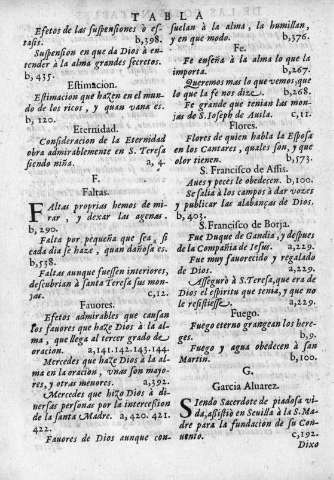 TABLA
Efetos de las suspensiones ò es-
tasis. b, 398.
Suspension en que da Dios à en-
tender à la alma grandes secretos.
b, 435.
Estimacion.
Estimacion que hazen en el mun-
do de los ricos, y quan vana es.
b, 120.
Eternidad.
Consideracion de la Eternidad
obra admirablemente en S. Teresa
siendo niña. a, 4.
F
Faltas.
FAltas proprias hemos de mi-
rar, y dexar las agenas.
b, 290.
Falta por pequeña que sea, si
cada dia se haze, quan dañosa es.
b, 538.
Faltas aunque fuessen interiores,
descubrian à Santa Teresa sus mon-
jas. c, 12.
Fauores.
Efetos admirables que causan
los fauores que haze Dios à la al-
ma, que llega al tercer grado de
oracion. a, 141. 142. 143. 144.
Mercedes que haze Dios à la al-
ma en la oracion, vnas son mayo-
res, y otras menores. a, 392.
Mercedes que hizo Dios à di-
uersas personas por la intercession
de la santa Madre. a, 420. 421.
422.
Fauores de Dios aunque con-
suelan à la alma, la humillan,
y en que modo. b, 576.
Fe.
Fe enseña à la alma lo que la
importa. b, 267.
Queremos mas lo que vemos, que
lo que la fe nos dize. b, 268.
Fe grande que tenian las mon-
jas de S. Ioseph de Auila. c, 11.
Flores.
Flores de quien habla la Esposa
en los Cantares, quales son, y que
olor tienen. b, 573.
S. Francisco de Assis.
Aues y peces le obedecen. b, 100.
Se salia à los campos à dar vozes
y publicar las alabanças de Dios.
b, 403.
S. Francisco de Borja.
Fue Duque de Gandia, y despues
de la Compañia de Iesus. a, 229.
Fue muy fauorecido y regalado
de Dios. a, 229.
Assegurò à S. Teresa, que era de
Dios el espiritu que tenia, y que no
le resistiesse. a, 229.
Fuego.
Fuego eterno grangean los here-
ges. b, 9.
Fuego y agua obedecen à san
Martin. b, 100.
G
Garcia Aluarez.
SIendo Sacerdote de piadosa vi-
da, assistiò en Seuilla à la S. Ma-
dre para la fundacion de su Con-
uento. c, 192.
Dixo